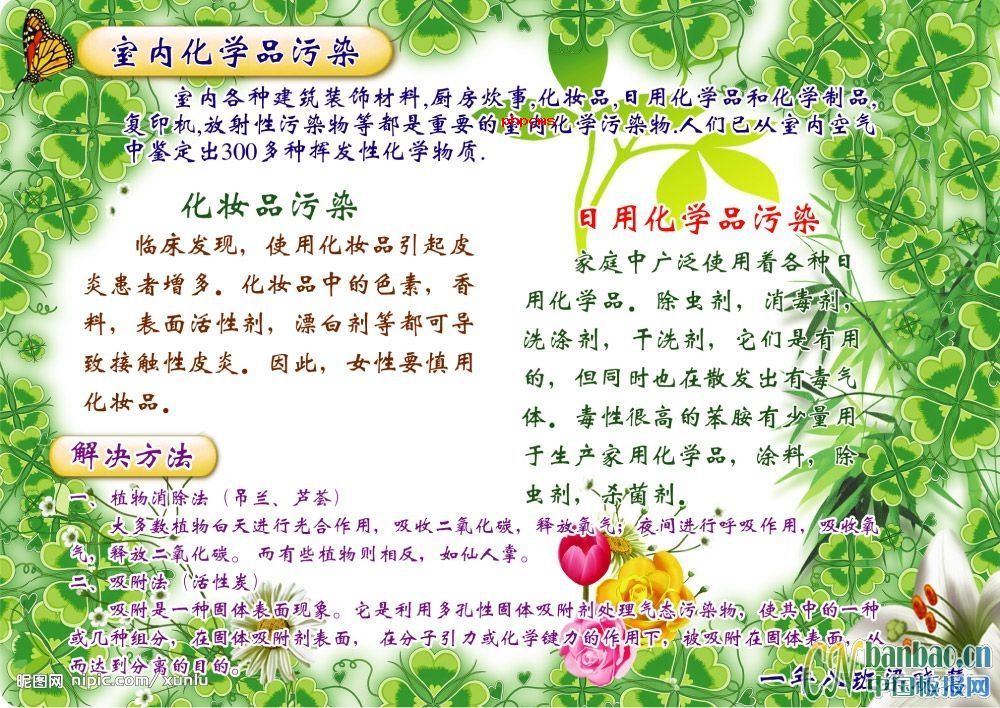 室内化学品污染
室内各种建筑装饰材料,厨房炊事,化妆品,日用化学品和化学制品,
复印机,放射性污染物等都是重要的室内化学污染物.人们已从室内空气
中鉴定出300多种挥发性化学物质.
化妆品污染
临床发现，使用化妆品引起皮
炎患者增多。化妆品中的色素，香
料，表面活性剂，漂白剂等都可导
致接触性皮炎。因此，女性要慎用
化妆品。
日用化学品污染
家庭中广泛使用着各种日
用化学品。除虫剂，消毒剂，
洗涤剂，干洗剂，它们是有用
的，但同时也在散发出有毒气
体。毒性很高的苯胺有少量用
于生产家用化学品，涂料，除
虫剂，杀菌剂。
解决方法
一、植物消除法（吊兰、芦荟）
大多数植物白天进行光合作用，吸收二氧化碳，释放氧气；夜间进行呼吸作用，吸收氧
气，释放二氧化碳。而有些植物则相反，如仙人掌。
二、吸附法（活性炭）
吸附是一种固体表面现象。它是利用多孔性固体吸附剂处理气态污染物，使其中的一种
或几种组分，在固体吸附剂表面， 在分子引力或化学键力的作用下，被吸附在固体表面，从
而达到分离的目的。
昵图网 nipic.com/xunlu
一年八班
banbao.cn
中国板报网